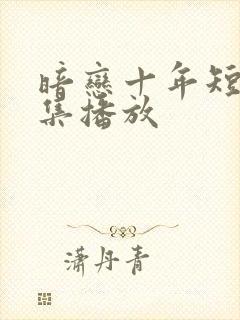 暗戀十年短
集播放
潇丹青